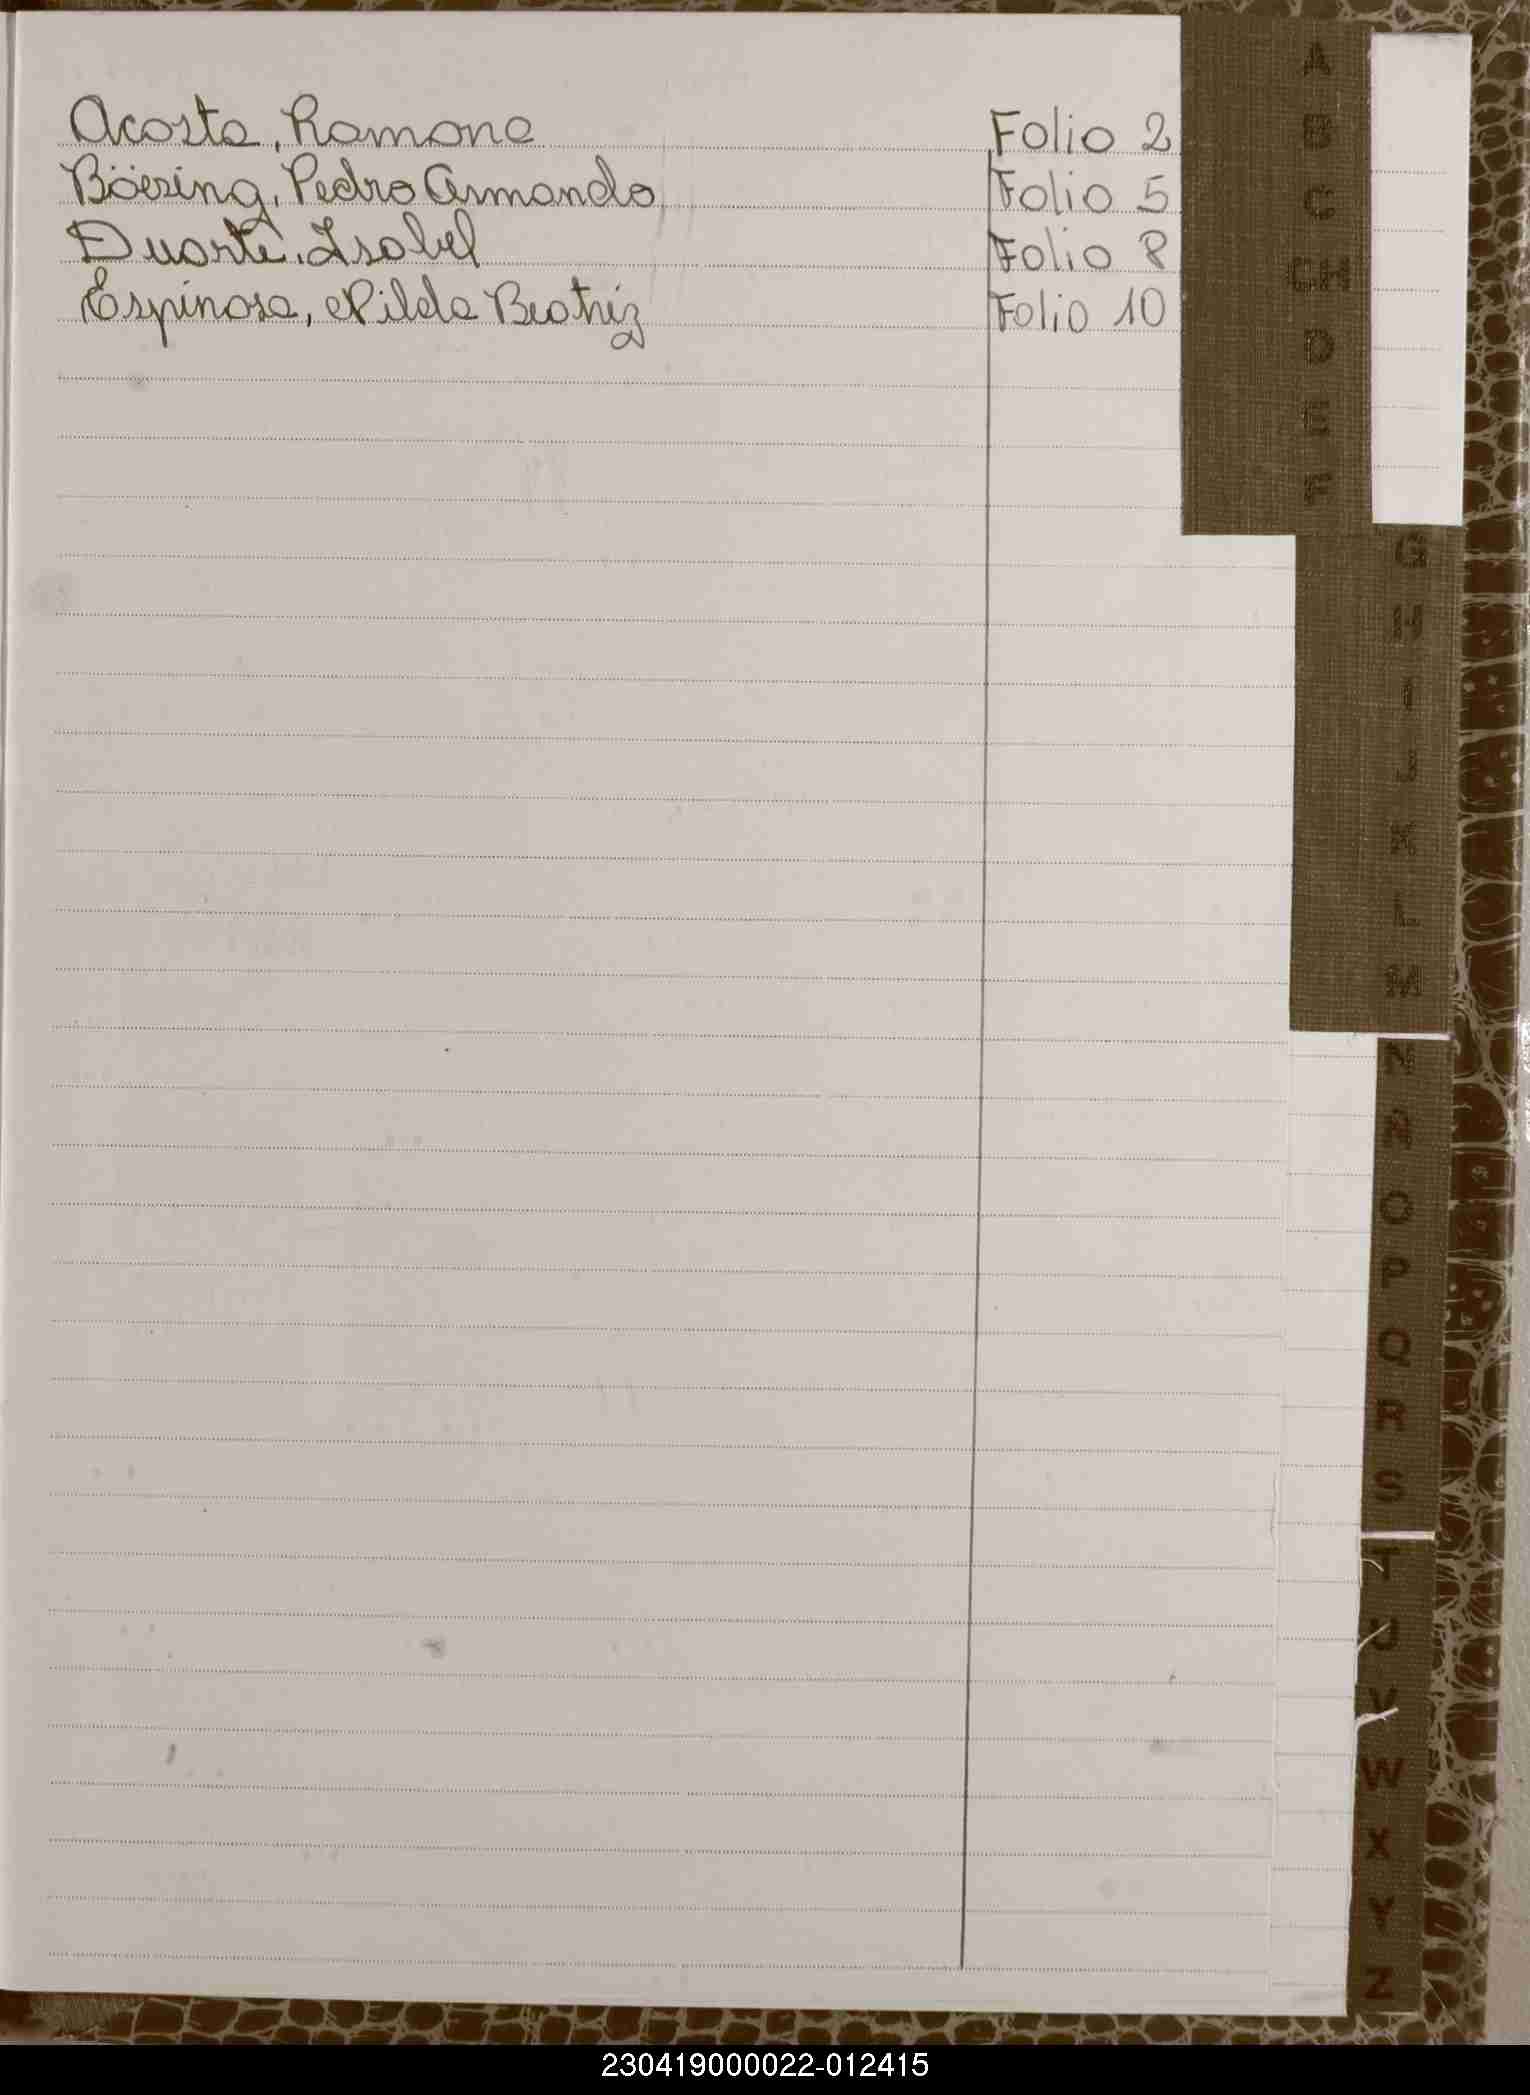 Acosta, Ramona Folio 2
Böering, Pedro Armando Folio 5
Duarte, Isabel Folio 8
Espinosa, Nilda Beatriz Folio 10
A
B
C
CH
D
E
F
G
H
I
J
K
L
M
N
Ñ
O
P
Q
R
S
T
U
V
W
X
Y
Z
230419000022-012415